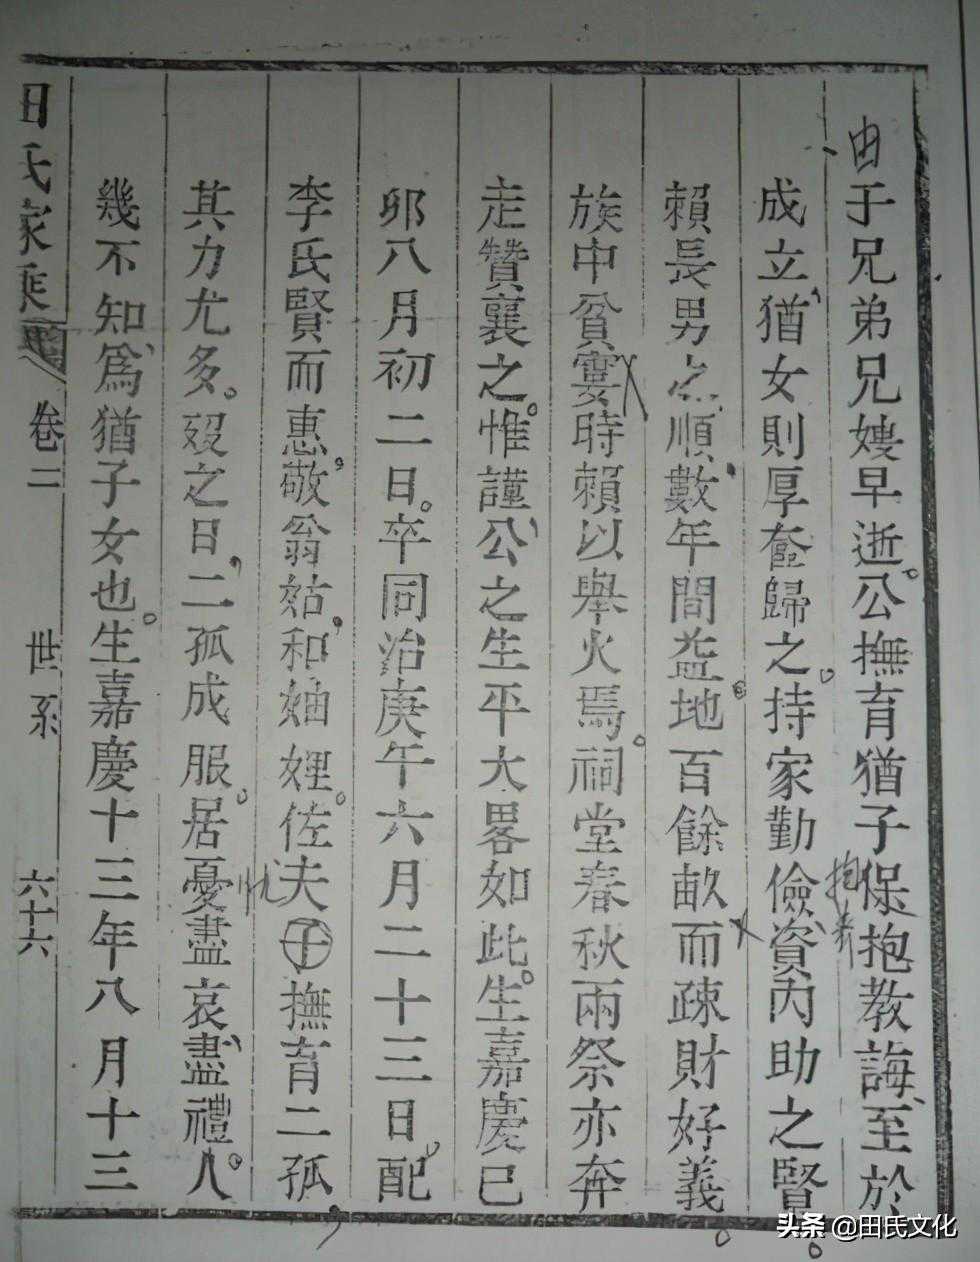 由于兄弟兄嫂早逝。公撫育猶子保抱教誨、至於
成立、猶女則厚奩歸之。持家勤儉、資內助之賢。
賴長男之順、數年間益地百餘畝而疎財好義。
族中貧寠時賴以舉火焉。祠堂春秋兩祭亦奔
走贊襄之。惟謹公之生平大畧如此。生嘉慶己
卯八月初二日。卒同治庚午六月二十三日。配
李氏賢而惠、敬翁姑、和妯娌。佐夫子撫育二孤
其力尤多。歿之日、二孤成服。居憂盡哀、盡禮。人
幾不知爲猶子女也。生嘉慶十三年八月十三
抱養
田氏家乘 卷二 世系 六十六
头条 @田氏文化